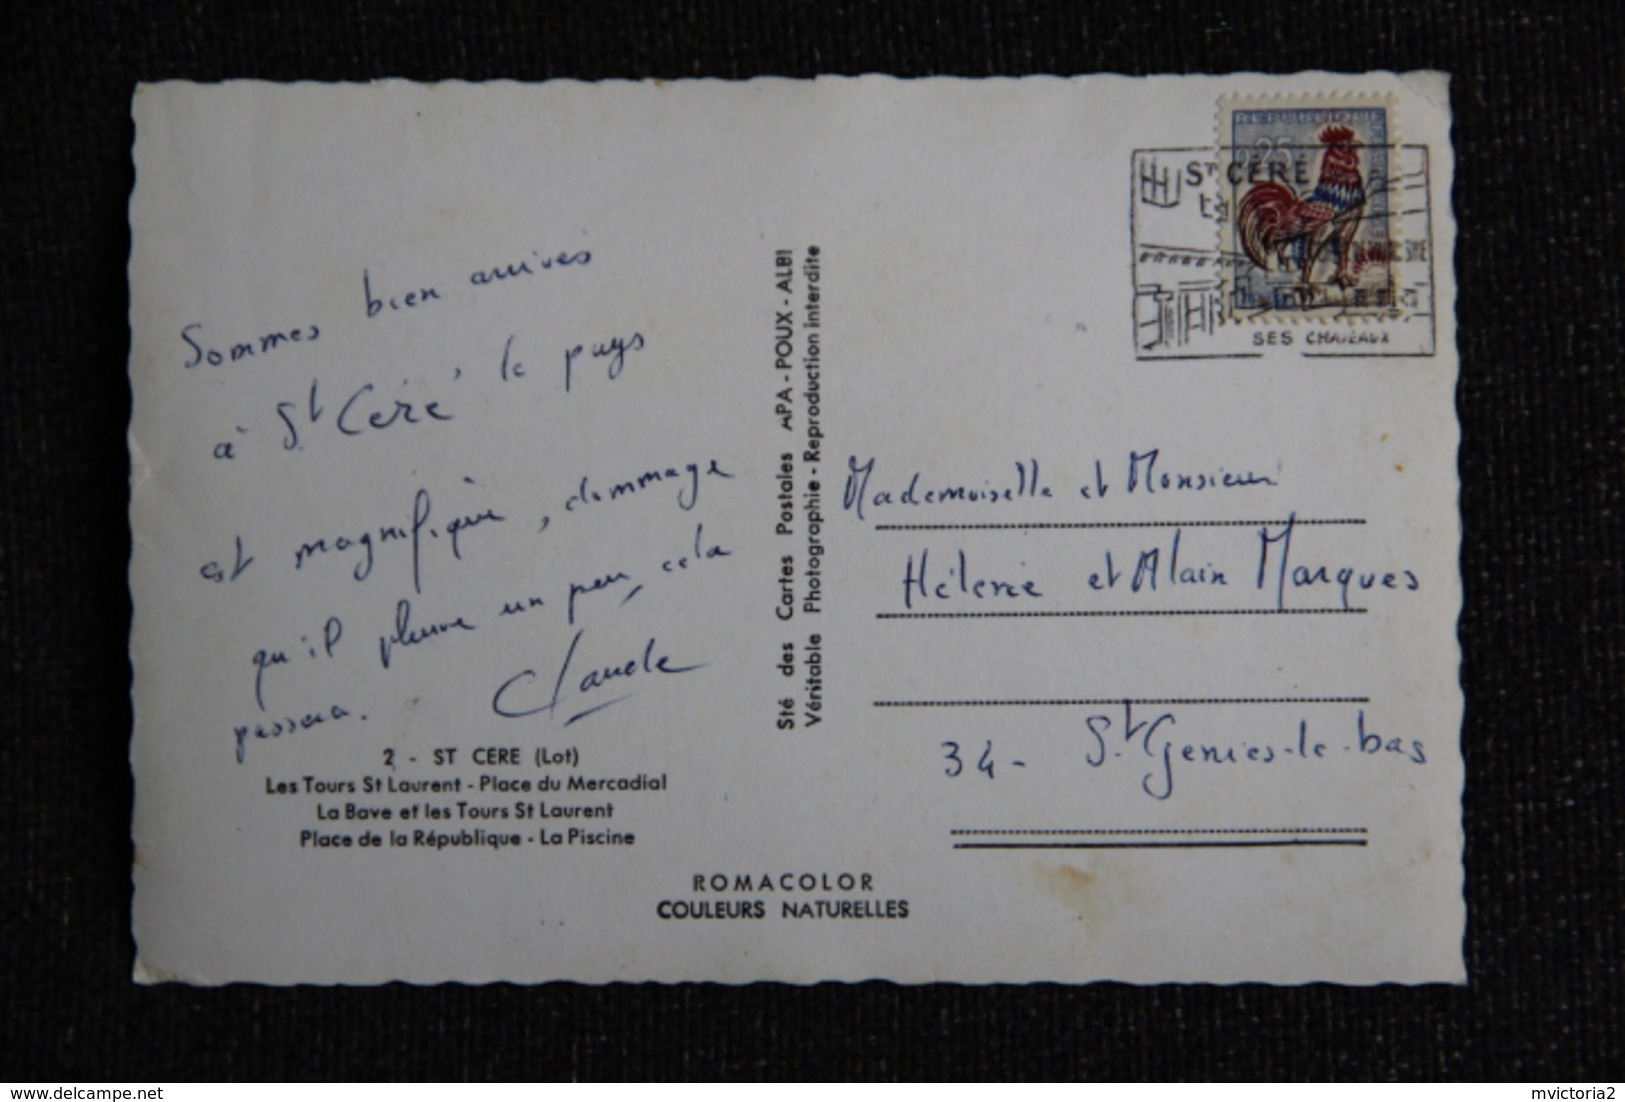 Sommes bien arrivés
à St Céré, le pays
est magnifique, dommage
qu'il pleuve un peu, cela
passera.
Claude
2 - ST CERE (Lot)
Les Tours St Laurent - Place du Mercadial
La Bave et les Tours St Laurent
Place de la République - La Piscine
ROMACOLOR
COULEURS NATURELLES
Sté des Cartes Postales APA-POUX-ALBI
Véritable Photographie - Reproduction interdite
0,25
ST CÉRÉ
SES CHATEAUX
Mademoiselle et Monsieur
Hélène et Alain Marques
34 - St Geniès-le-bas
mvictoria2